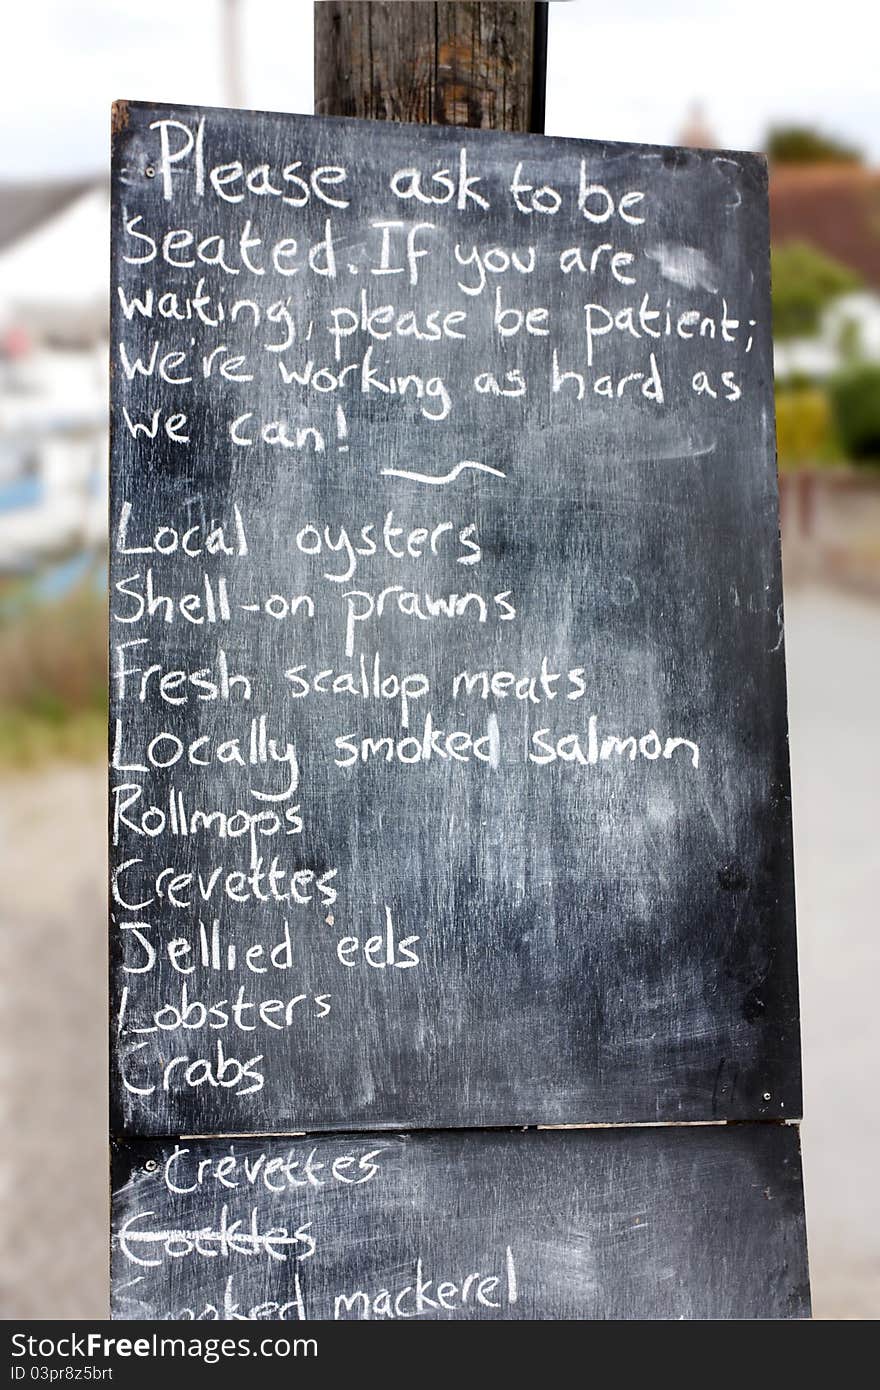 Please ask to be
Seated. If you are
waiting, please be patient;
We're working as hard as
we can!
Local oysters
Shell-on prawns
Fresh scallop meats
Locally smoked salmon
Rollmops
Crevettes
Jellied eels
Lobsters
Crabs
Crevettes
Cockles
Smoked mackerel
StockFreeImages.com by Dreamstime®
ID 03pr8z5brt